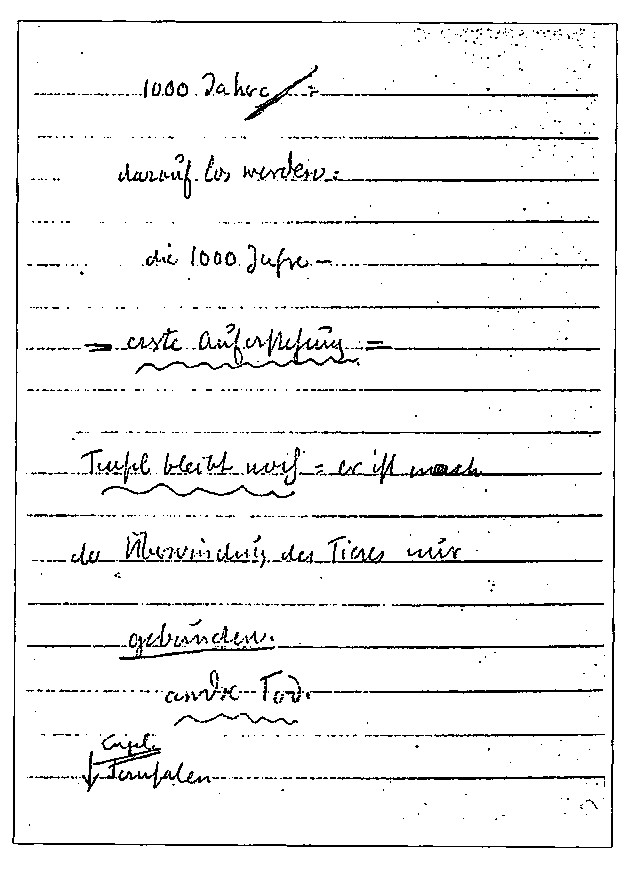 1000 Jahre =
darauf los werden.
die 1000 Jahre –
= erste Auferstehung =
Teufel bleibt noch = er ist nach
der Überwindung des Tieres nur
gebunden.
andre Tod.
Jerusalem